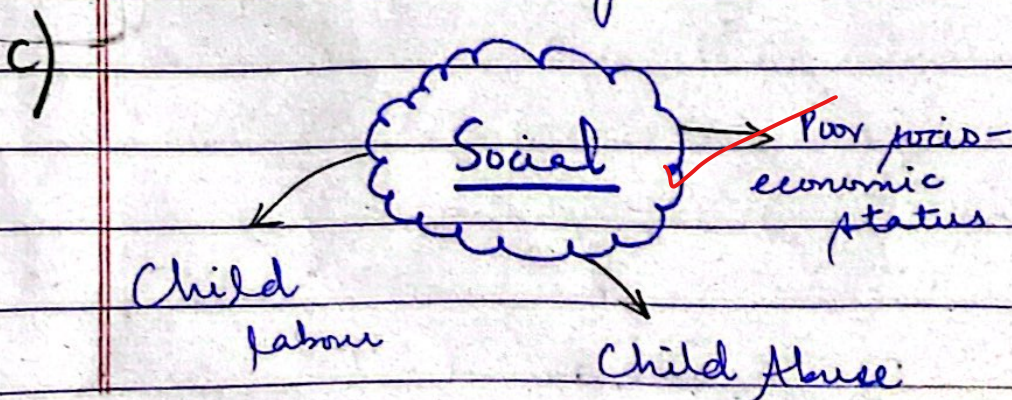 c)
Social
Poor socio-
economic
status
Child
labour
Child Abuse